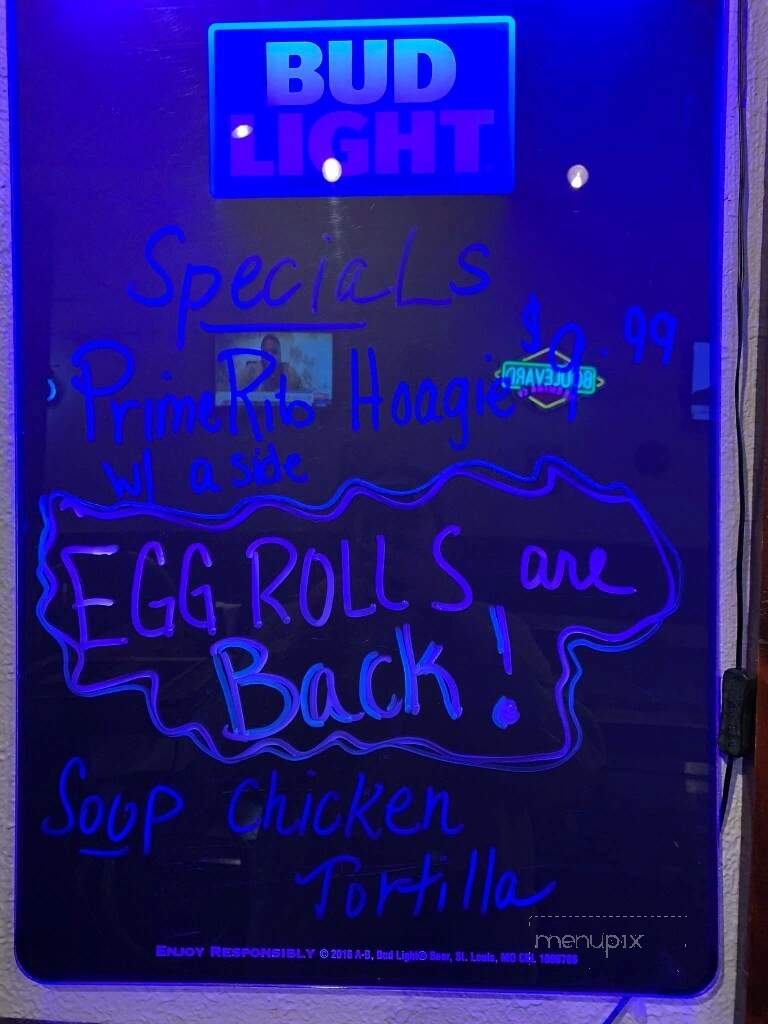 BUD
LIGHT
Specials
Prime Rib Hoagie $9.99
w/ a side
BOULEVARD
EGG ROLLS are
Back!
Soup Chicken
Tortilla
menupix
ENJOY RESPONSIBLY © 2016 A-B, Bud Light® Beer, St. Louis, MO